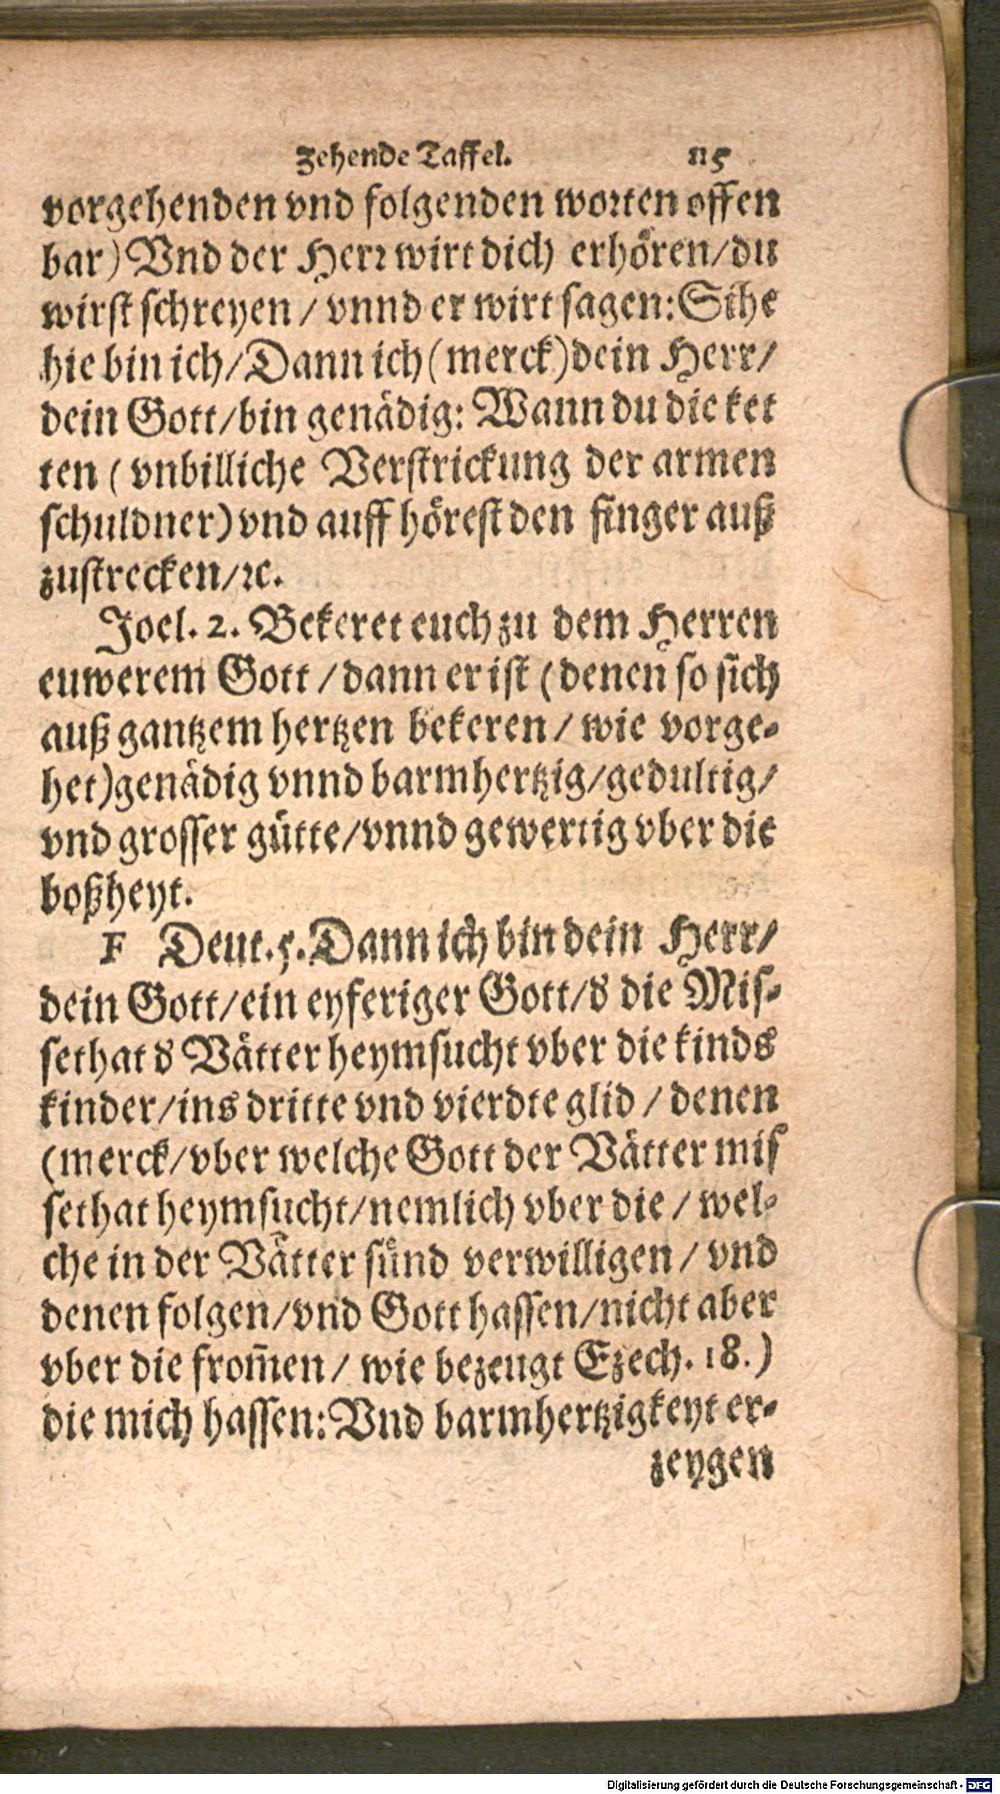 Zehende Taffel. 115
vorgehenden vnd folgenden worten offen
bar) Vnd der Herr wirt dich erhören/du
wirst schreyen / vnnd er wirt sagen: Sihe
hie bin ich/Dann ich (merck) dein Herr/
dein Gott/bin genädig: Wann du die ket
ten ( vnbilliche Verstrickung der armen
schuldner) vnd auff hörest den finger auß
zustrecken/ꝛc.
Joel. 2. Bekeret euch zu dem Herren
euwerem Gott / dann er ist (denen so sich
auß gantzem hertzen bekeren / wie vorge-
het) genädig vnnd barmhertzig/gedultig/
vnd grosser gütte/vnnd gewertig vber die
boßheyt.
F Deut. 5. Dann ich bin dein Herr/
dein Gott/ein eyferiger Gott/d die Mis-
sethat d Vätter heymsucht vber die kinds
kinder/ins dritte vnd vierdte glid / denen
(merck/vber welche Gott der Vätter mis
sethat heymsucht/nemlich vber die / wel-
che in der Vätter sünd verwilligen / vnd
denen folgen/vnd Gott hassen/nicht aber
vber die from̃en / wie bezeugt Ezech. 18.)
die mich hassen: Vnd barmhertzigkeyt er-
zeygen
Digitalisierung gefördert durch die Deutsche Forschungsgemeinschaft - DFG